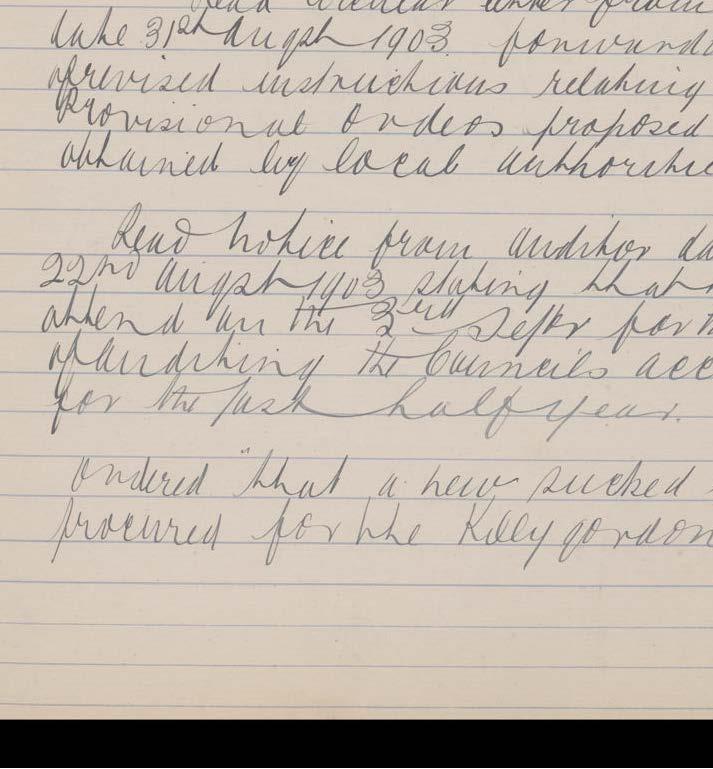 Read Circular letter from
date 31st Augst 1903 forwardi
of revised instructions relating
Provisional Orders proposed
obtained by local authoritie
Read notice from auditor da
22nd Augst 1903 stating that
attend on the 3rd Septr for th
of auditing the Councils acc
for the past half year.
Ordered "that a new sucked
procured for the Killygordon